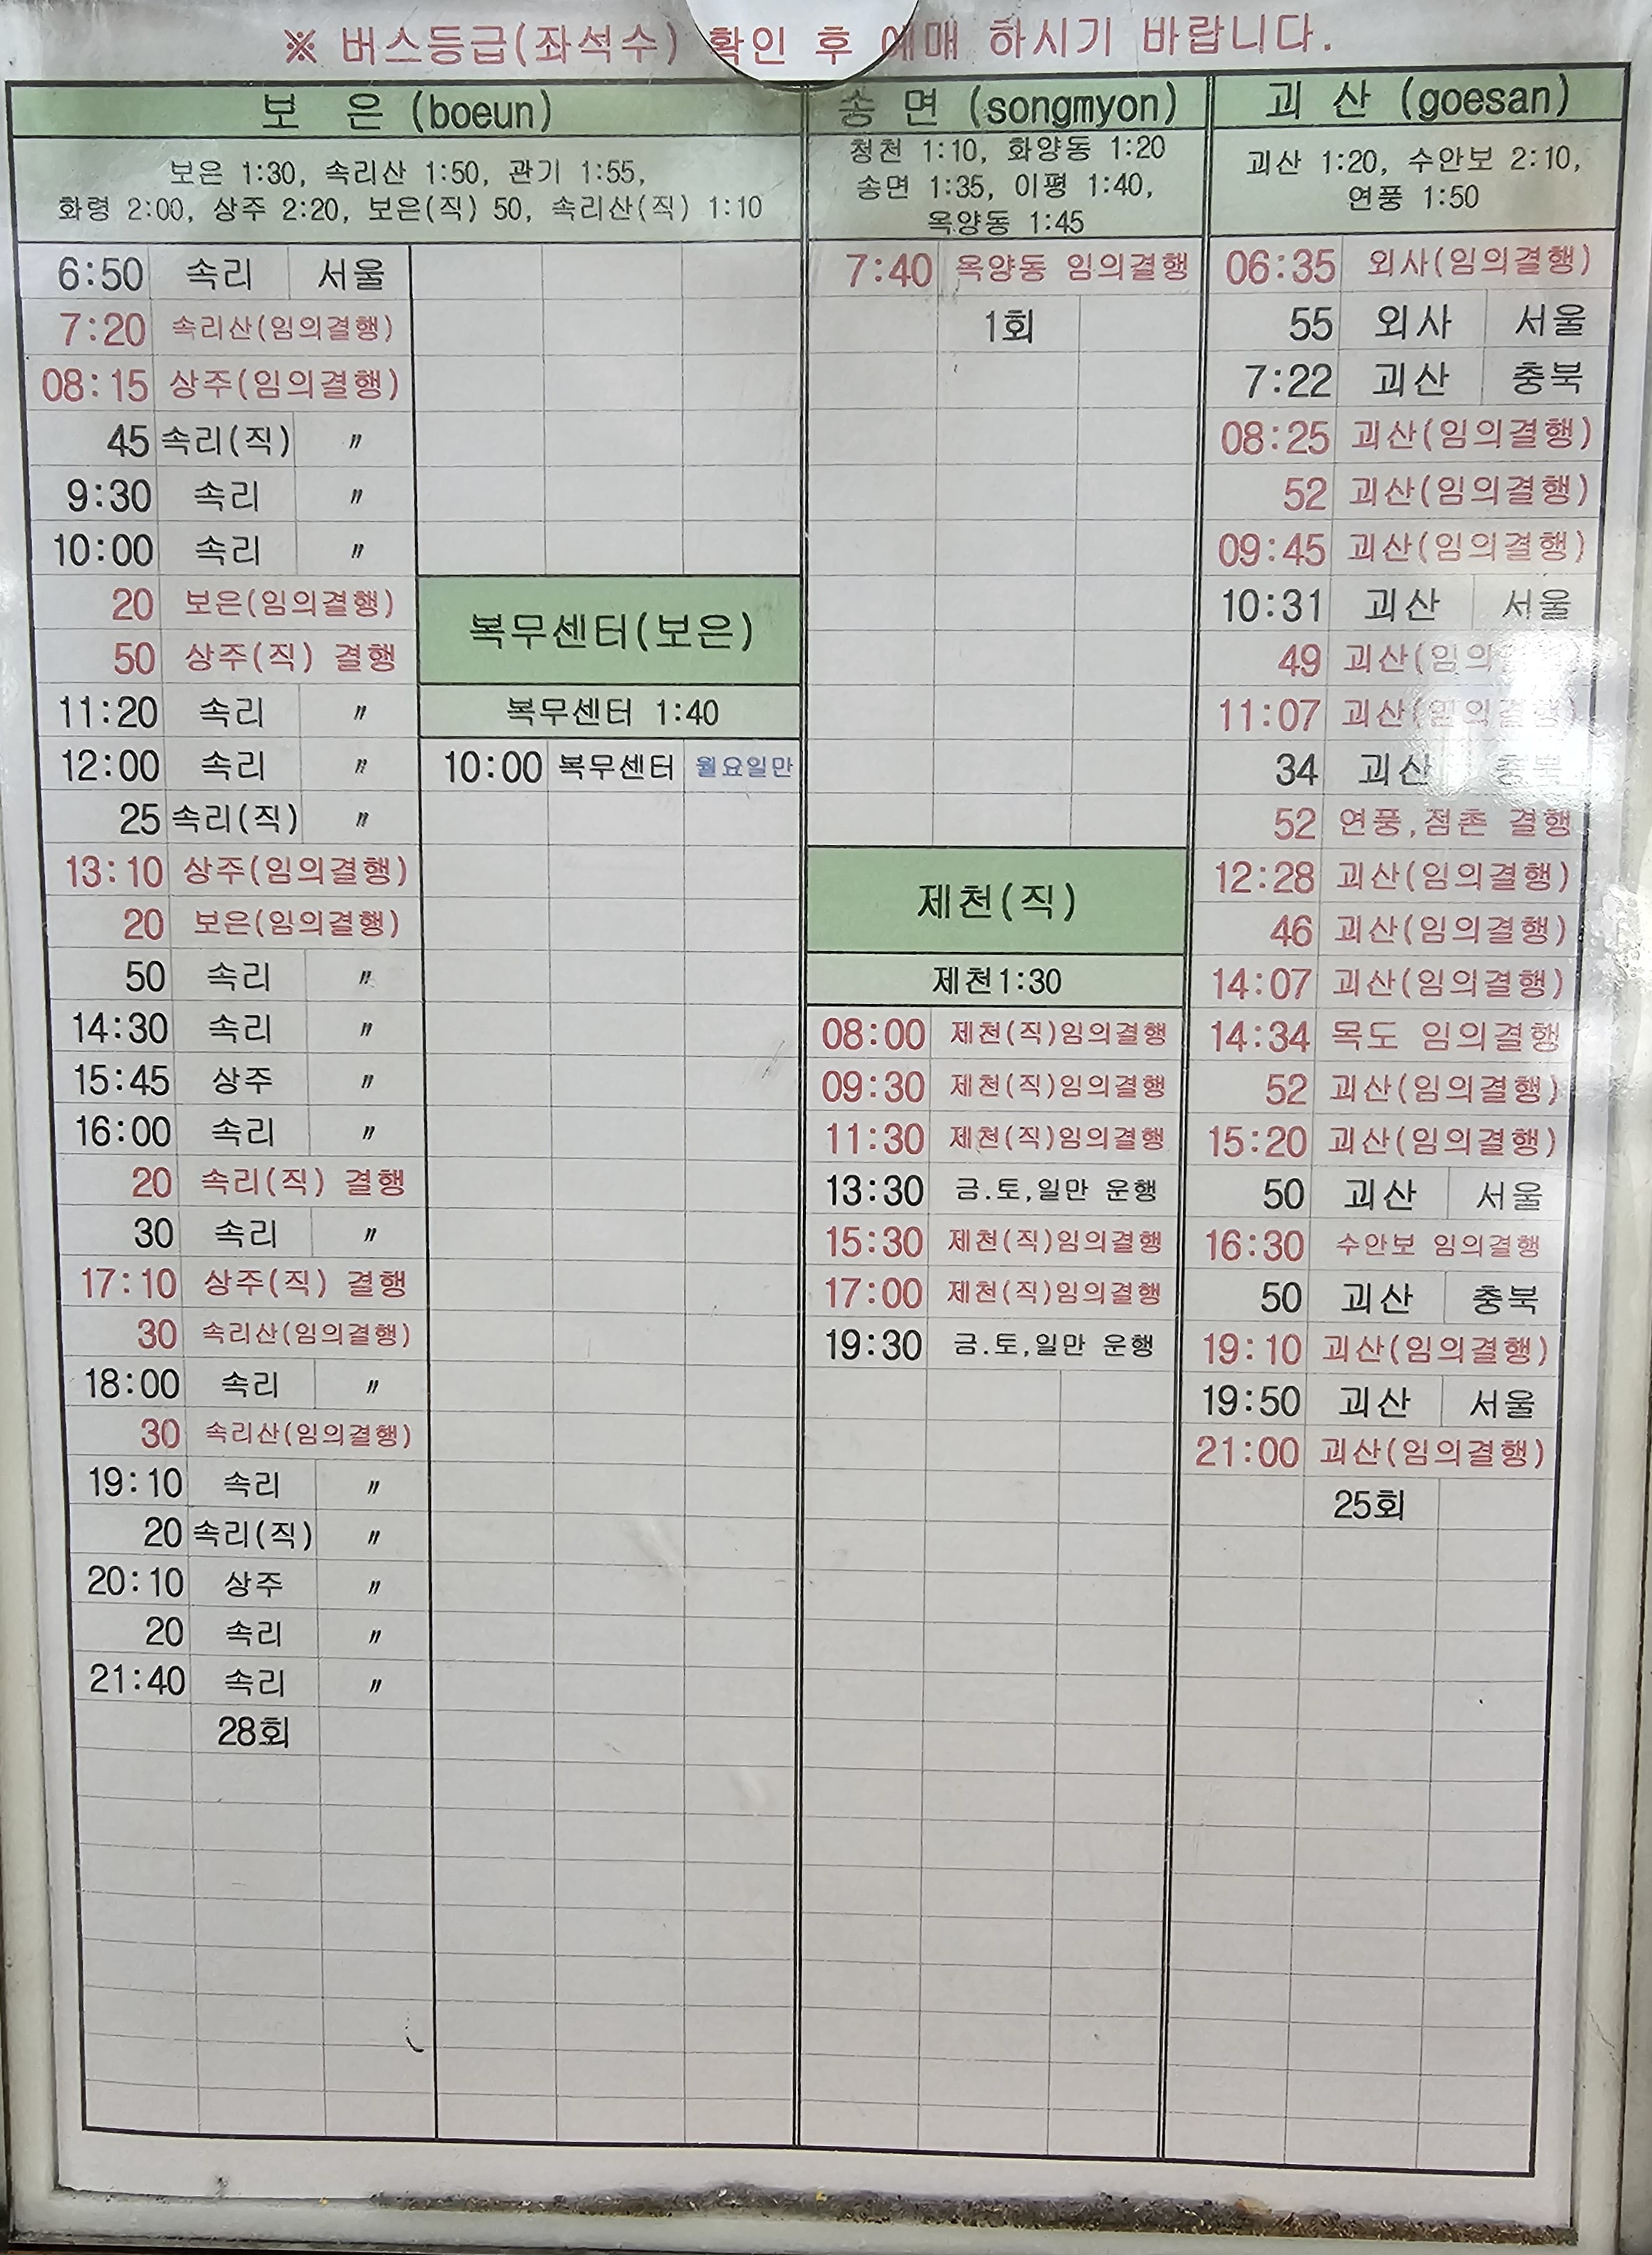 ※ 버스등급(좌석수) 확인 후 예매 하시기 바랍니다.
보 은 (boeun)
보은 1:30, 속리산 1:50, 관기 1:55,
화령 2:00, 상주 2:20, 보은(직) 50, 속리산(직) 1:10
6:50 속리 서울
7:20 속리산(임의결행)
08:15 상주(임의결행)
45 속리(직) 〃
9:30 속리 〃
10:00 속리 〃
20 보은(임의결행)
50 상주(직) 결행
11:20 속리 〃
12:00 속리 〃
25 속리(직) 〃
13:10 상주(임의결행)
20 보은(임의결행)
50 속리 〃
14:30 속리 〃
15:45 상주 〃
16:00 속리 〃
20 속리(직) 결행
30 속리 〃
17:10 상주(직) 결행
30 속리산(임의결행)
18:00 속리 〃
30 속리산(임의결행)
19:10 속리 〃
20 속리(직) 〃
20:10 상주 〃
20 속리 〃
21:40 속리 〃
28회
복무센터(보은)
복무센터 1:40
10:00 복무센터 월요일만
송 면 (songmyon)
청천 1:10, 화양동 1:20
송면 1:35, 이평 1:40,
옥양동 1:45
7:40 옥양동 임의결행
1회
제천(직)
제천1:30
08:00 제천(직)임의결행
09:30 제천(직)임의결행
11:30 제천(직)임의결행
13:30 금.토,일만 운행
15:30 제천(직)임의결행
17:00 제천(직)임의결행
19:30 금.토,일만 운행
괴 산 (goesan)
괴산 1:20, 수안보 2:10,
연풍 1:50
06:35 외사(임의결행)
55 외사 서울
7:22 괴산 충북
08:25 괴산(임의결행)
52 괴산(임의결행)
09:45 괴산(임의결행)
10:31 괴산 서울
49 괴산(임의
11:07 괴산(임의결행)
34 괴산 충북
52 연풍,점촌 결행
12:28 괴산(임의결행)
46 괴산(임의결행)
14:07 괴산(임의결행)
14:34 목도 임의결행
52 괴산(임의결행)
15:20 괴산(임의결행)
50 괴산 서울
16:30 수안보 임의결행
50 괴산 충북
19:10 괴산(임의결행)
19:50 괴산 서울
21:00 괴산(임의결행)
25회